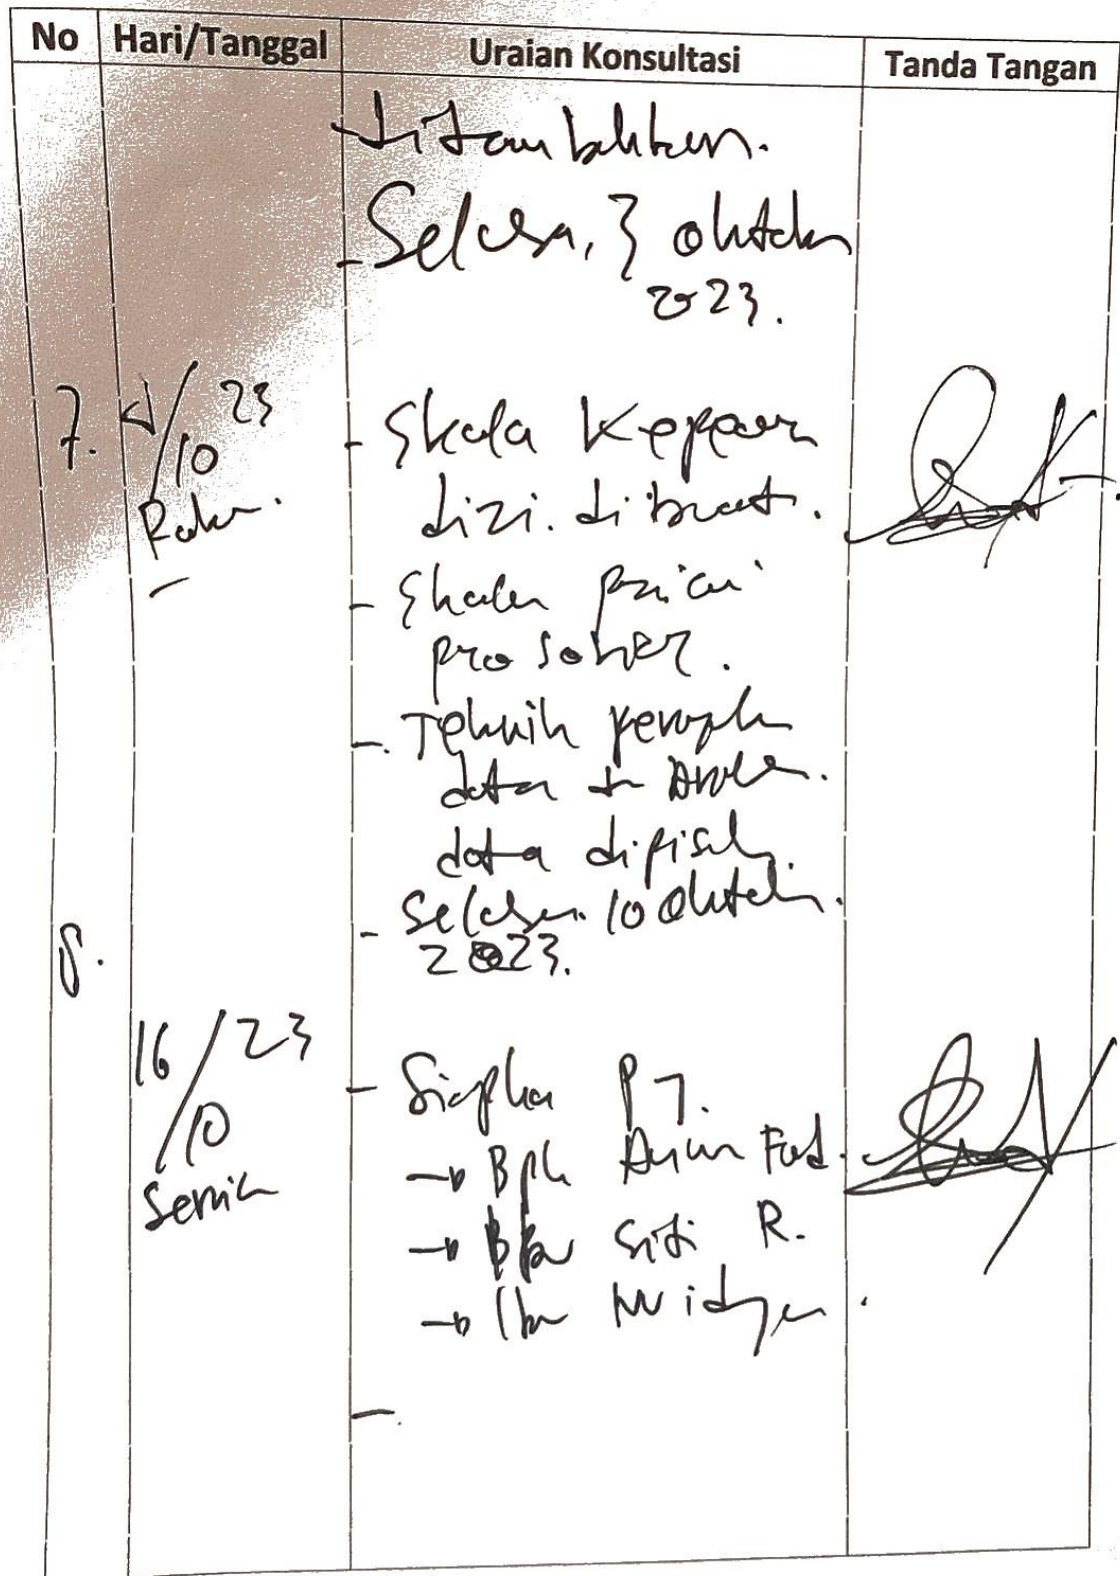 No Hari/Tanggal Uraian Konsultasi Tanda Tangan
ditambahkan.
- Selasa, 3 oktober
2023.
7. 4/10 23
Rabu.
- Skala Keper
dizi. dibuat.
- Skala
pro sosial.
- Teknik
data
data dipisah.
- Selasa. 10 Oktober.
2023.
8.
16/10/23
Senin
- Siapkan PT.
→ Bpk
→ Siti R.
→ Ibu Widya.
-